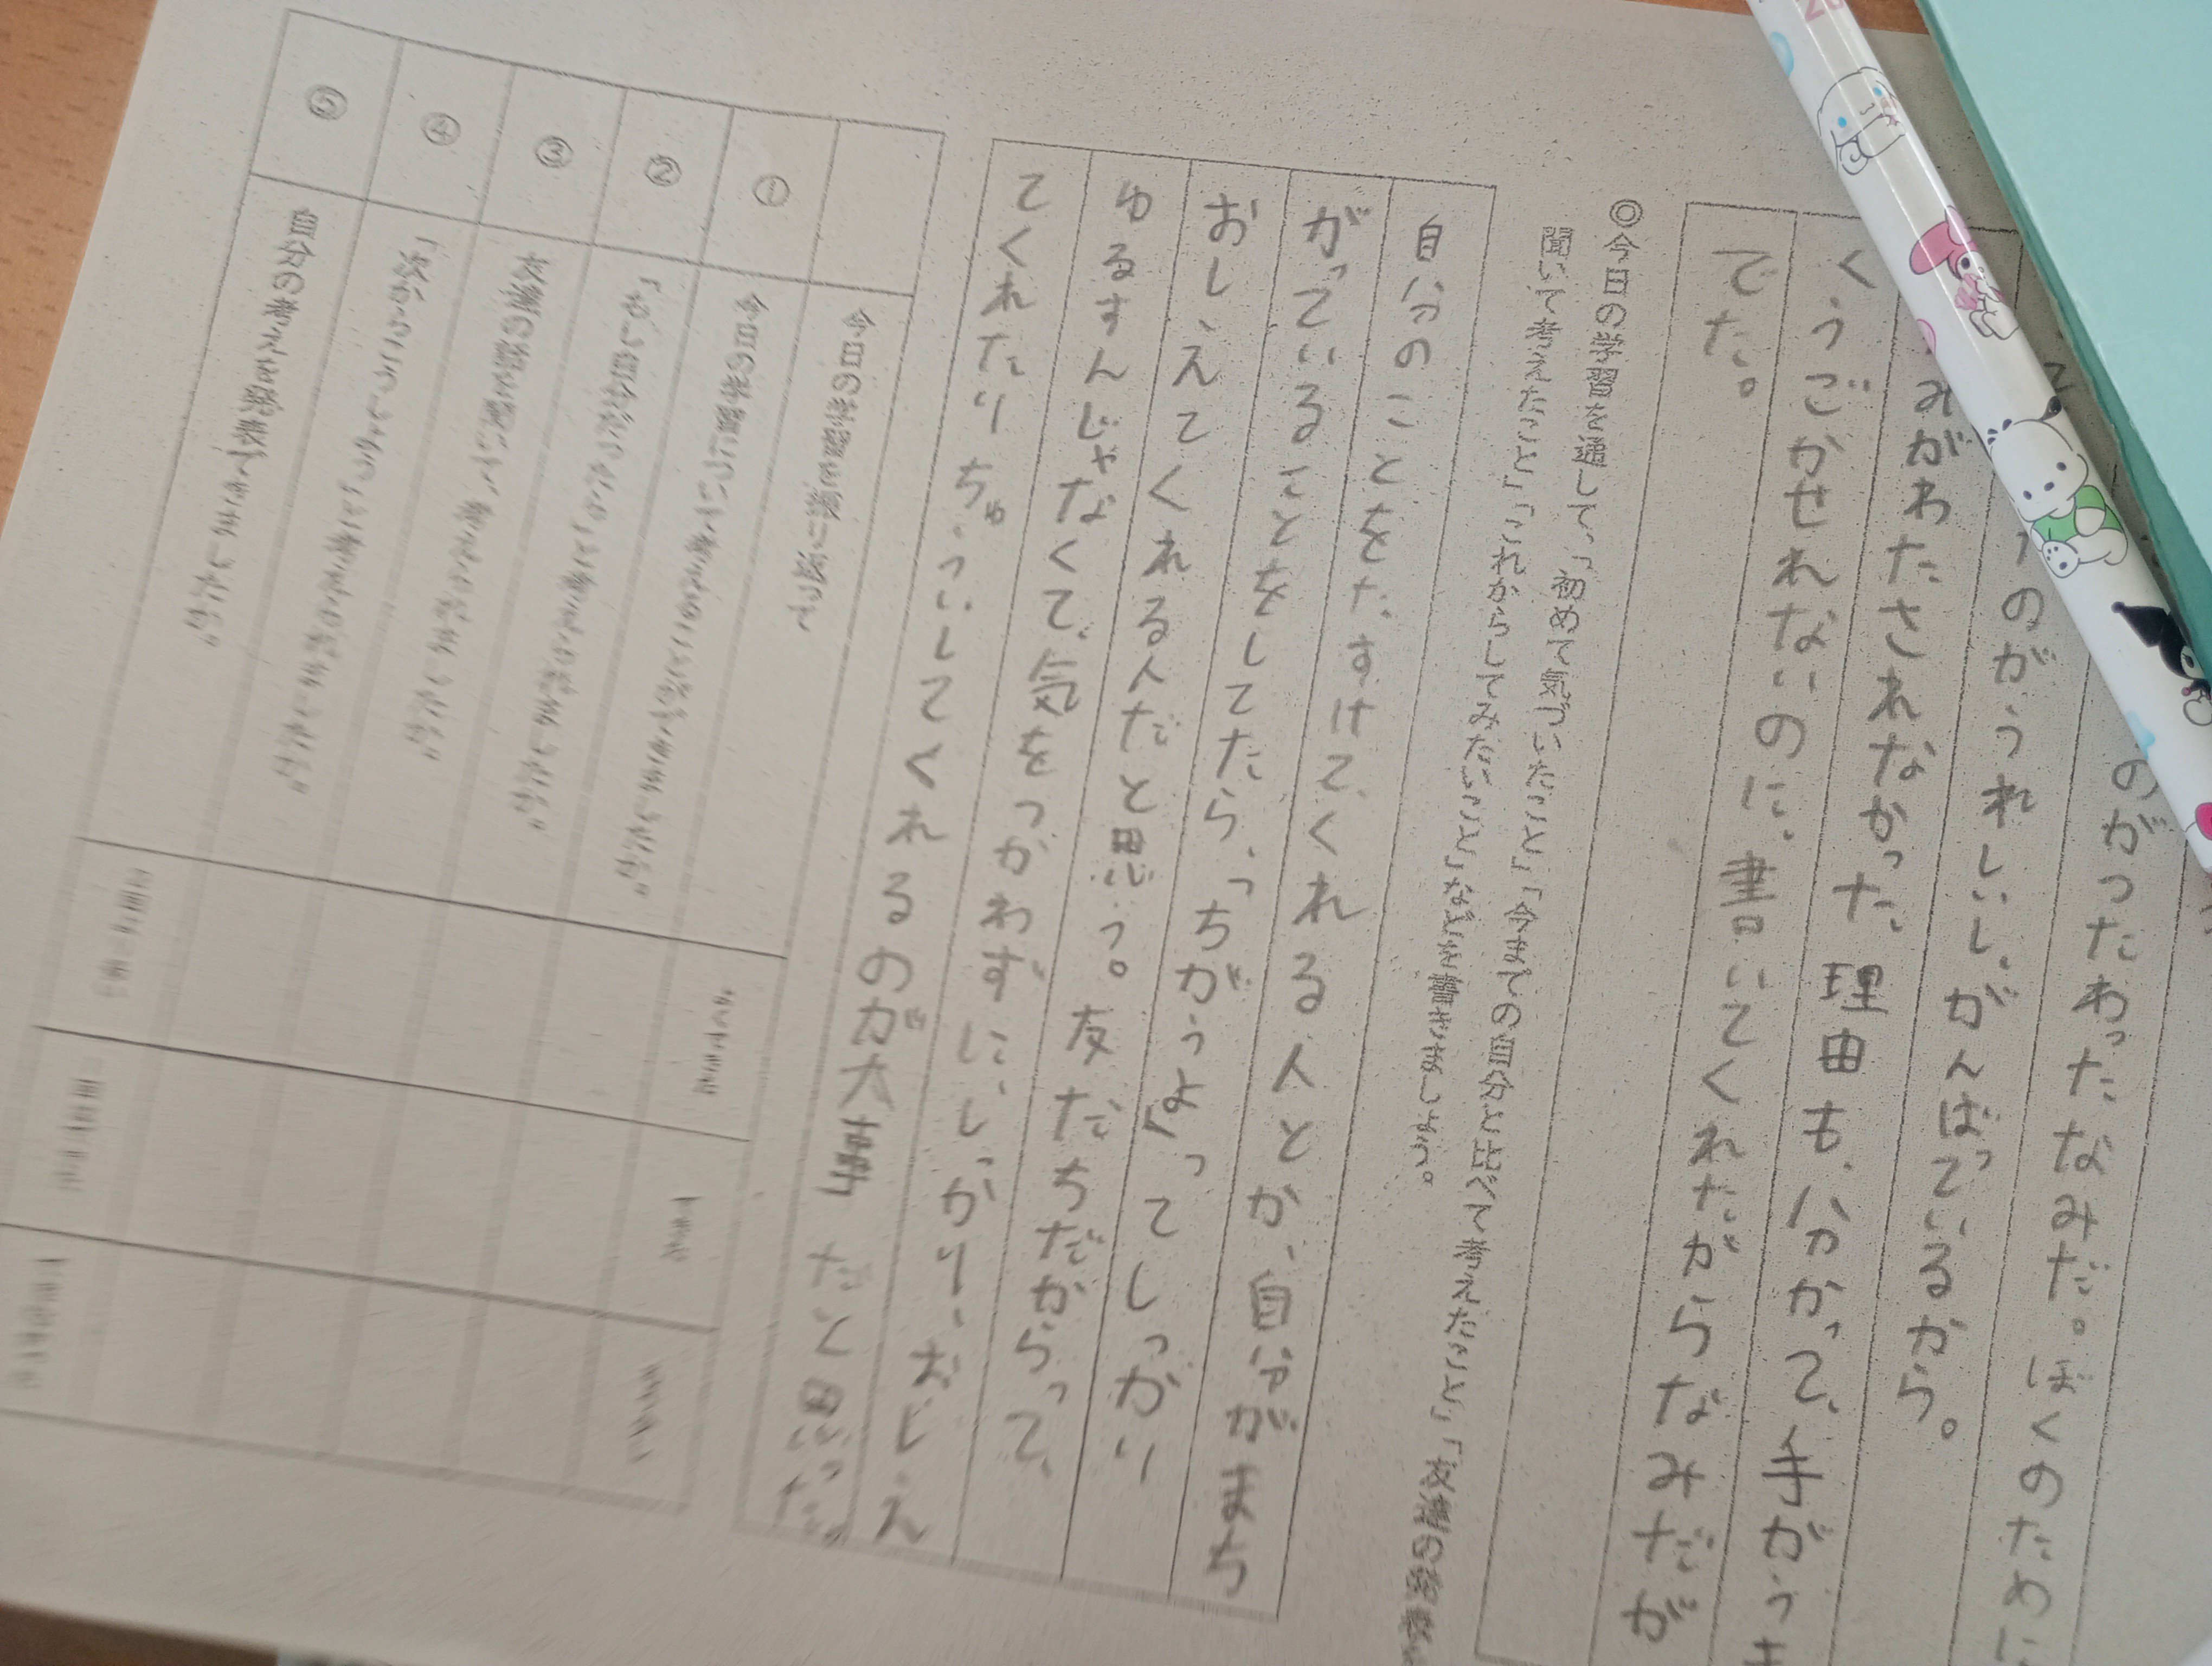 のがつたわったなみだ。ぼくのために
のがうれしいし、がんばっているから。
みがわたされなかった理由も、分かって、手がう
くうごかせれないのに、書いてくれたがらなみだが
でた。
◎今日の学習を通して、「初めて気づいたこと」「今までの自分と比べて考えたこと」「友達の発表
聞いて考えたこと」「これからしてみたいこと」などを書きましょう。
自分のことをたすけてくれる人とか、自分がまち
がっていることをしてたら、「ちがうよ」ってしっかり
おしえてくれる人だと思う。友だちだからって、
ゆるすんじゃなくて、気をつかわずに、しっかり、おしえ
てくれたりちゅういしてくれるのが大事だと思った。
今日の学習を振り返って
① 今日の学習について考えることができましたか。
② 「もし自分だったら」と考えられましたか。
③ 友達の発表を聞いて、考えられましたか。
④ 「次からこうしよう」と考えられましたか。
⑤ 自分の考えを発表できましたか。